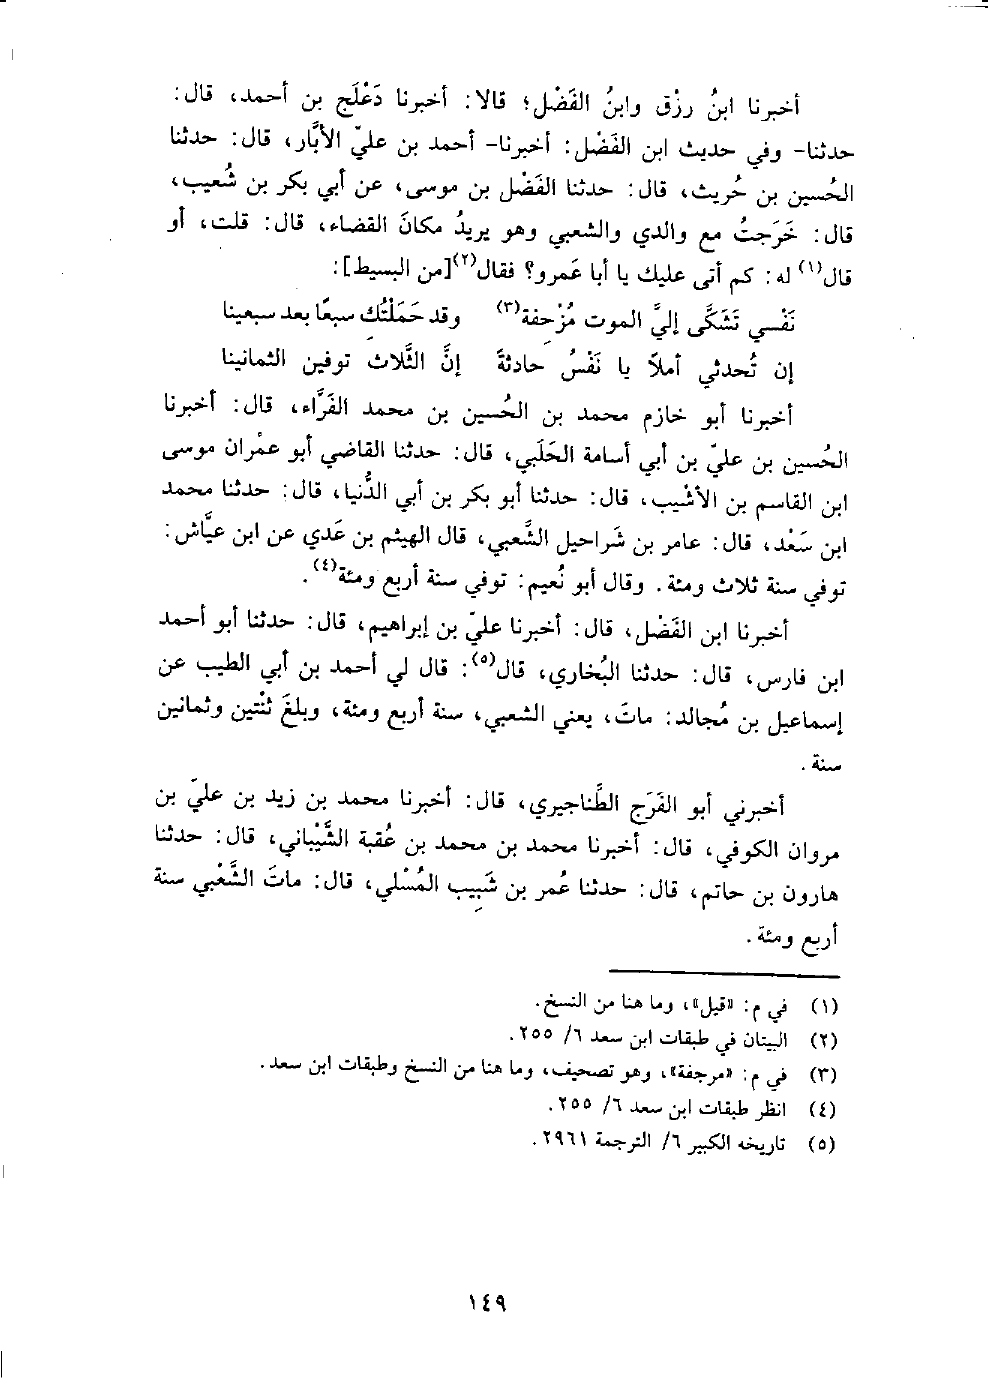 أخبرنا ابنُ رزْق وابنُ الفَضْل؛ قالا: أخبرنا دَعْلَج بن أحمد، قال:
حدثنا- وفي حديث ابن الفَضْل: أخبرنا- أحمد بن عليّ الأبَّار، قال: حدثنا
الحُسين بن حُريث، قال: حدثنا الفَضْل بن موسى، عن أبي بكر بن شُعيب،
قال: خَرَجتُ مع والدي والشعبي وهو يريدُ مكانَ القضاء، قال: قلت، أو
قال(١) له: كم أتى عليك يا أبا عَمرو؟ فقال(٢)[من البسيط]:
نَفْسي تَشَكَّى إليَّ الموت مُزْحِفة(٣) وقد حَمَلْتُكِ سبعًا بعد سبعينا
إن تُحدثي أملاً يا نَفْسُ حادثةً إنَّ الثَّلاث توفين الثمانينا
أخبرنا أبو خازم محمد بن الحُسين بن محمد الفَرَّاء، قال: أخبرنا
الحُسين بن عليّ بن أبي أسامة الحَلَبي، قال: حدثنا القاضي أبو عمْران موسى
ابن القاسم بن الأشْيب، قال: حدثنا أبو بكر بن أبي الدُّنيا، قال: حدثنا محمد
ابن سَعْد، قال: عامر بن شَراحيل الشَّعبي، قال الهيثم بن عَدي عن ابن عيَّاش:
توفي سنة ثلاث ومئة. وقال أبو نُعيم: توفي سنة أربع ومئة(٤).
أخبرنا ابن الفَضْل، قال: أخبرنا عليّ بن إبراهيم، قال: حدثنا أبو أحمد
ابن فارس، قال: حدثنا البُخاري، قال(٥): قال لي أحمد بن أبي الطيب عن
إسماعيل بن مُجالد: ماتَ، يعني الشعبي، سنة أربع ومئة، وبلغَ ثنْتين وثمانين
سنة.
أخبرني أبو الفَرَج الطَّناجيري، قال: أخبرنا محمد بن زيد بن عليّ بن
مروان الكوفي، قال: أخبرنا محمد بن محمد بن عُقبة الشَّيْباني، قال: حدثنا
هارون بن حاتم، قال: حدثنا عُمر بن شَبِيب المُسْلي، قال: ماتَ الشَّعْبي سنة
أربع ومئة.
(١) في م: «قيل»، وما هنا من النسخ.
(٢) البيتان في طبقات ابن سعد ٦/ ٢٥٥.
(٣) في م: «مرجفة»، وهو تصحيف، وما هنا من النسخ وطبقات ابن سعد.
(٤) انظر طبقات ابن سعد ٦/ ٢٥٥.
(٥) تاريخه الكبير ٦/ الترجمة ٢٩٦١.
١٤٩